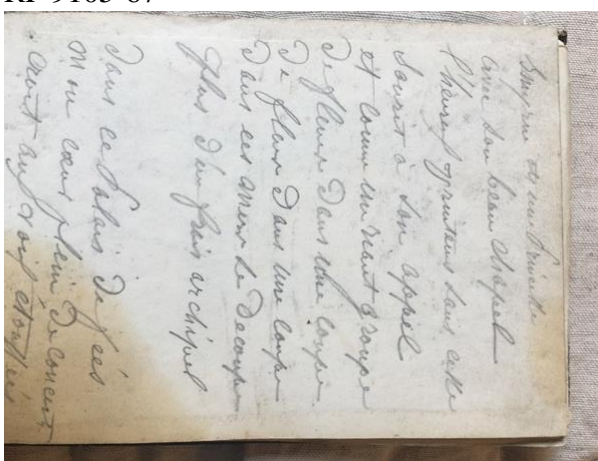 Smyrne est une Princesse
avec son beau chapel
l'heureux printems sans cesse
Sourit à son appel
et comme un riant groupe
De fleurs dans une coupe
De fleurs dans une coupe
Dans ces mers se decoupe
Plus d'un frais archipel
Dans ce Palais de fées
Mon cœur plein de concert
Croit aux voix étouffées